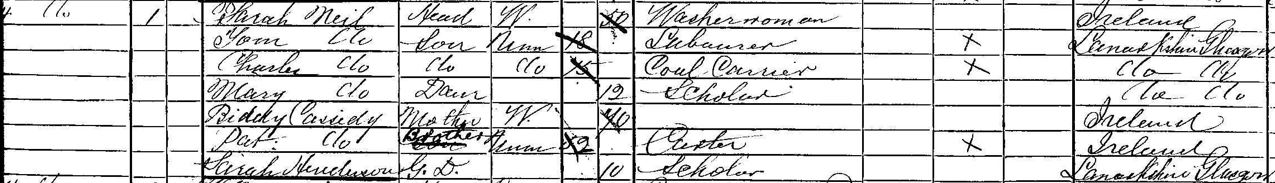 Do 1 Sarah Neil Head W. 50 Washerwoman Ireland
Tom Do Son Unm 18 Labourer X Lanarkshire Glasgow
Charles Do Do Do 15 Coal Carrier X Do Do
Mary Do Daur 12 Scholar Do Do
Biddy Cassidy Mother W. Ireland
Pat. Do Brother Unm 42 Carter X Ireland
Sarah Henderson G. D. 10 Scholar Lanarkshire Glasgow